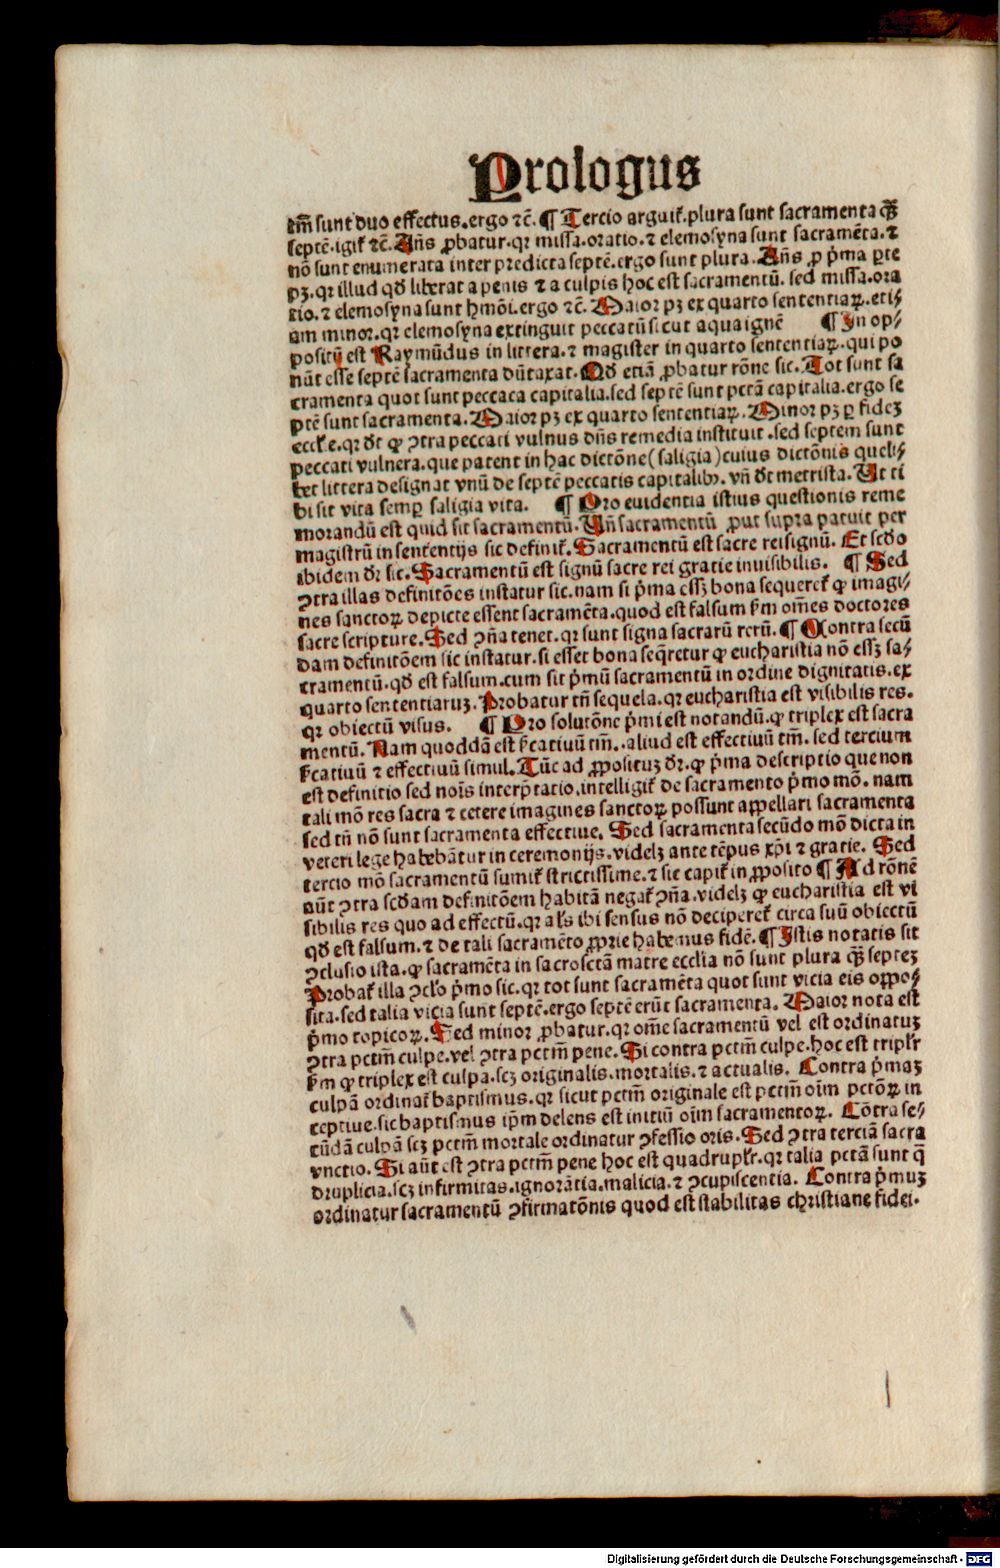 Prologus
tm̄ sunt duo effectus.ergo ⁊c̄. ¶ Tercio arguit̄.plura sunt sacramenta q̄ꝫ
septē.igit̄ ⁊c̄. Añs ꝓbatur.qꝛ missa.oratio.⁊ elemosyna sunt sacramēta.⁊
nō sunt enumerata inter predicta septē.ergo sunt plura. Añs ꝓ p̄ma ꝑte
pꝫ.qꝛ illud qd̄ liberat a penis ⁊ a culpis hoc est sacramentū. sed missa.ora
tio.⁊ elemosyna sunt hmōi.ergo ⁊c̄. Maior pꝫ ex quarto sententiaꝝ.eti⸗
am minor.qꝛ elemosyna extinguit peccatū sicut aqua ignē ¶ In op⸗
positū est Raymūdus in littera.⁊ magister in quarto sententiaꝝ.qui po
nūt esse septē sacramenta dūtaxat. Qd̄ etiā ꝓbatur rōne sic. Tot sunt sa
cramenta quot sunt peccaca capitalia.sed septē sunt pctā capitalia.ergo se
ptē sunt sacramenta. Maior pꝫ ex quarto sententiaꝝ. Minor pꝫ ꝑ fideꝫ
eccłe.qꝛ dr̄ ꝙ ꝯtra peccati vulnus dn̄s remedia instituit.sed septem sunt
peccati vulnera.que patent in hac dictōne (saligia) cuius dictōnis queli⸗
bet littera designat vnū de septē peccatis capitalibꝫ. vn̄ dr̄ metrista. Ut ti
bi sit vita semꝑ saligia vita. ¶ Pro euidentia istius questionis reme
morandū est quid sit sacramentū. Un̄ sacramentū ꝓut supra patuit per
magistrū in sententijs sic definit̄. Sacramentū est sacre rei signū. Et scd̄o
ibidem dr̄ sic. Sacramentū est signū sacre rei gratie inuisibilis. ¶ Sed
ꝯtra illas definitōes instatur sic.nam si p̄ma essꝫ bona sequeret̄ ꝙ imagi⸗
nes sanctoꝝ depicte essent sacramēta.quod est falsum ẜm om̄es doctores
sacre scripture. Sed ꝯn̄a tenet.qꝛ sunt signa sacrarū rerū. ¶ Contra secū
dam definitōem sic instatur.si esset bona seq̄retur ꝙ eucharistia nō essꝫ sa⸗
cramentū.qd̄ est falsum.cum sit p̄mū sacramentū in ordine dignitatis.ex
quarto sententiaruꝫ. Probatur tn̄ sequela.qꝛ eucharistia est visibilis res.
qꝛ obiectū visus. ¶ Pro solutōne p̄mi est notandū.ꝙ triplex est sacra
mentū. Nam quoddā est ẜcatiuū tm̄.aliud est effectiuū tm̄. sed tercium
ẜcatiuū ⁊ effectiuū simul. Tūc ad ꝓposituꝫ dr̄.ꝙ p̄ma descriptio que non
est definitio sed nois̄ interp̄tatio.intelligit̄ de sacramento p̄mo mō. nam
tali mō res sacra ⁊ cetere imagines sanctoꝝ possunt appellari sacramenta
sed tn̄ nō sunt sacramenta effectiue. Sed sacramenta secūdo mō dicta in
veteri lege habebātur in ceremonijs.videlꝫ ante tēpus xp̄i ⁊ gratie. Sed
tercio mō sacramentū sumit̄ strictissime.⁊ sic capit̄ in ꝓposito ¶ Ad rōnē
aūt ꝯtra scd̄am definitōem habitā negat̄ ꝯn̄a.videlꝫ ꝙ eucharistia est vi
sibilis res quo ad effectū.qꝛ als̄ ibi sensus nō deciperet̄ circa suū obiectū
qd̄ est falsum.⁊ de tali sacramēto ꝓprie habemus fidē. ¶ Istis notatis sit
ꝯclusio ista.ꝙ sacramēta in sacrosctā matre ecclia nō sunt plura q̄ꝫ septeꝫ
Probat̄ illa ꝯclo p̄mo sic.qꝛ tot sunt sacramēta quot sunt vicia eis oppo⸗
sita.sed talia vicia sunt septē.ergo septē erūt sacramenta. Maior nota est
p̄mo topicoꝝ. Sed minor ꝓbatur.qꝛ om̄e sacramentū vel est ordinatuꝫ
ꝯtra pctm̄ culpe.vel ꝯtra pctm̄ pene. Si contra pctm̄ culpe.hoc est triplr̄
ẜm ꝙ triplex est culpa.scꝫ originalis.mortalis.⁊ actualis. Contra p̄maꝫ
culpā ordinat̄ baptismus.qꝛ sicut pctm̄ originale est pctm̄ oīm pctōꝝ in
ceptiue.sic baptismus ip̄m delens est initiū oīm sacramentoꝝ. Cōtra se⸗
cūdā culpā scꝫ pctm̄ mortale ordinatur ꝯfessio oris. Sed ꝯtra terciā sacra
vnctio. Si aūt est ꝯtra pctm̄ pene hoc est quadruplr̄.qꝛ talia pctā sunt q̄
druplicia.scꝫ infirmitas.ignorātia.malicia.⁊ ꝯcupiscentia. Contra p̄muꝫ
ordinatur sacramentū ꝯfirmatōnis quod est stabilitas christiane fidei.
Digitalisierung gefördert durch die Deutsche Forschungsgemeinschaft - DFG